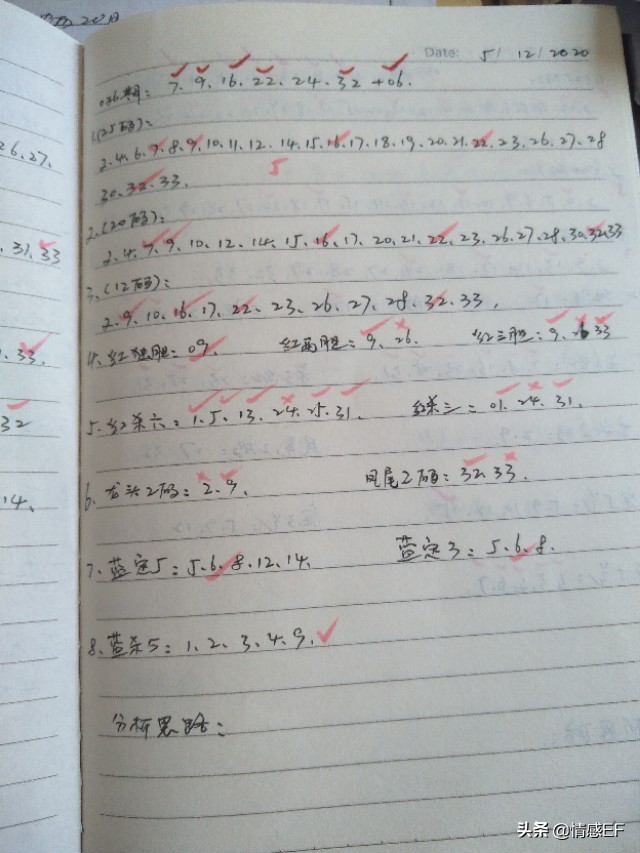 Date: 5/12/2020
036期: 7、9、16、22、24、32+06.
1.(25码):
2.4.6.7.8.9.10.11.12.14.15.16.17.18.19.20.21.22.23.26.27.28
30.32.33.
5
2.(20码):
2.4.7.9.10.12.14.15.16.17.20.21.22.23.26.27.28.30.32.33
3.(12码):
2.9.10.16.17.22.23.26.27.28.32.33.
4.红独胆: 09. 红两胆: 9、26. 红三胆: 9、26 33
5.红杀六: 1.5.13.24.25.31. 红杀三: 01.24.31.
6.龙头2码: 2.9. 凤尾2码: 32 33.
7.蓝定5: 5.6.8.12.14. 蓝定3: 5.6.8.
8.蓝杀5: 1、2、3、4、9.
分析思路:
26.27.
31.33
33.
32
14.
头条 @情感EF